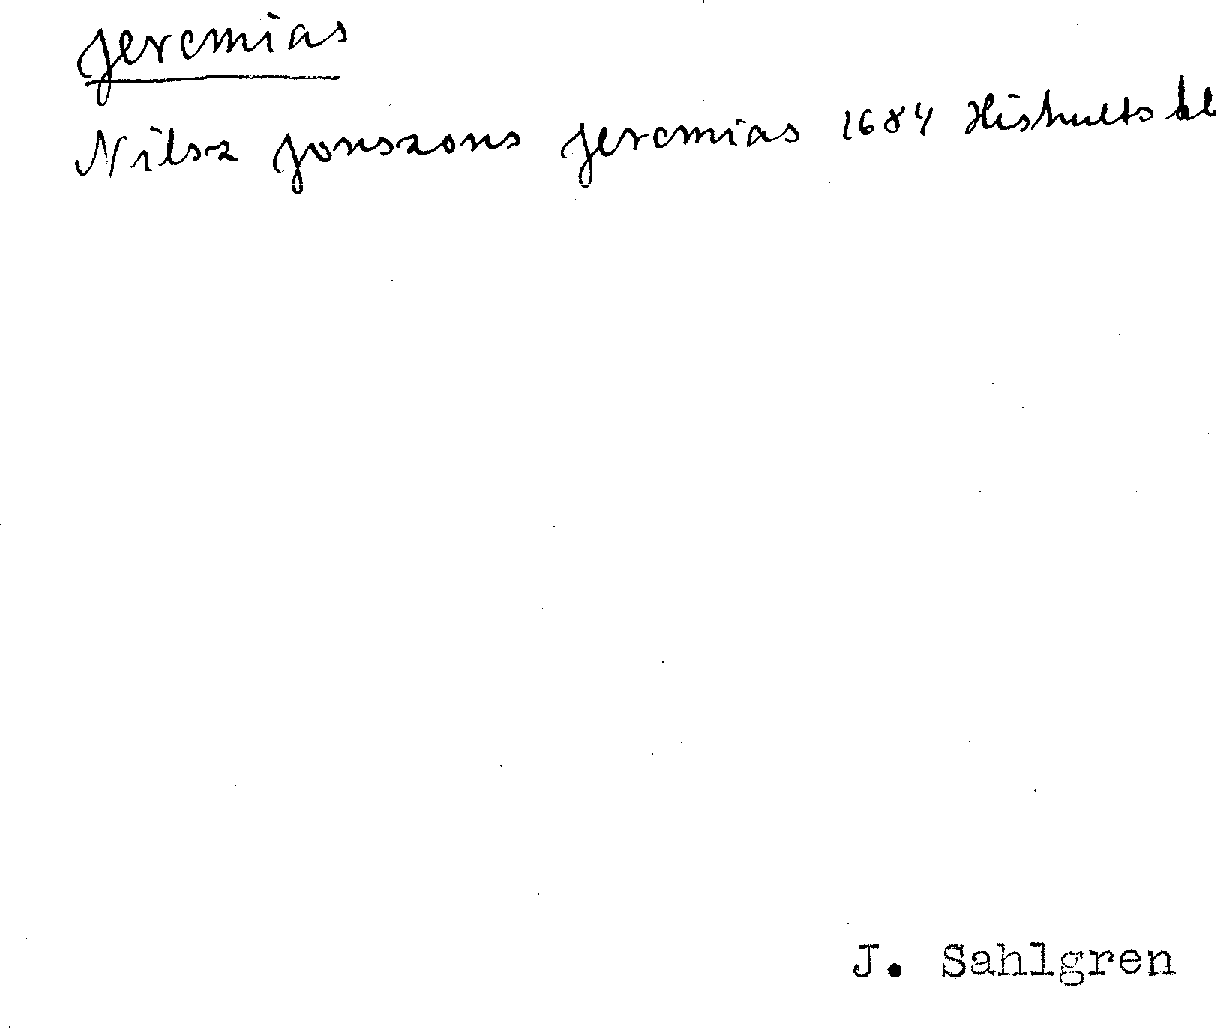 Jeremias
Nilsz Jonszons Jeremias 1684 Hishults kb
J. Sahlgren